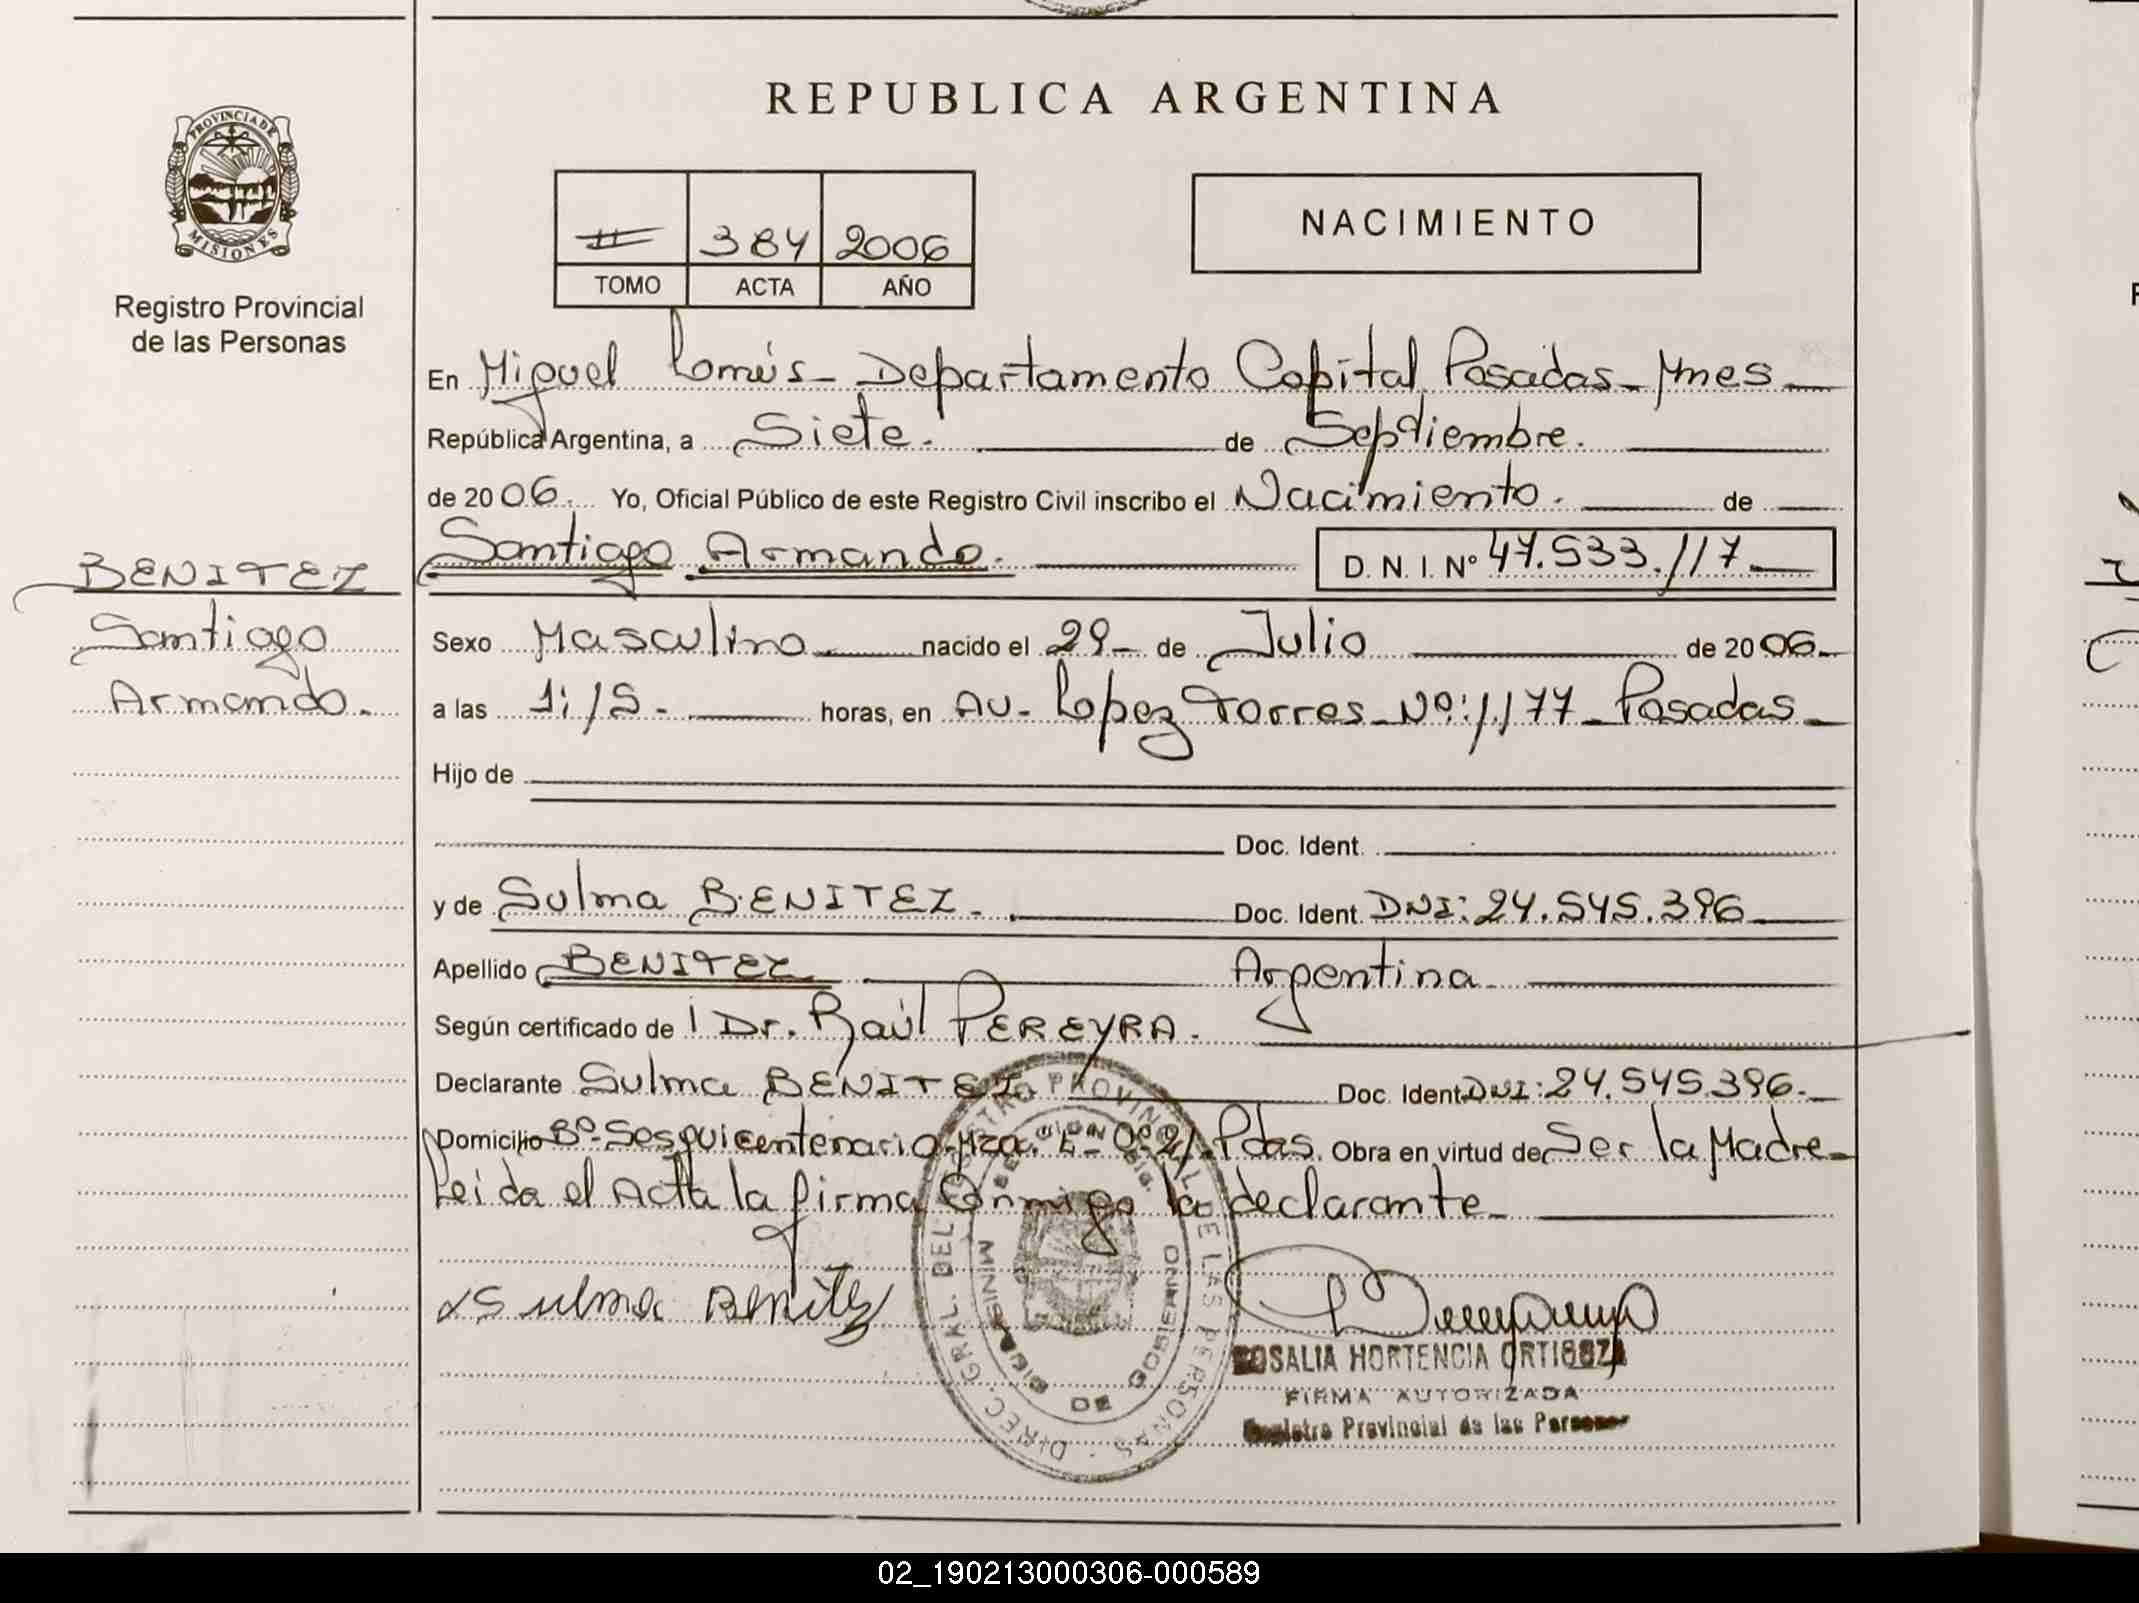 REPUBLICA ARGENTINA
PROVINCIA DE
MISIONES
Registro Provincial
de las Personas
384 2006
TOMO ACTA AÑO
NACIMIENTO
En Miguel Lanús - Departamento Capital Posadas - Mnes
República Argentina, a Siete. de Septiembre.
de 2006. Yo, Oficial Público de este Registro Civil inscribo el Nacimiento. de
Santiago Armando. D. N. I. Nº 47.533.117
BENITEZ
Santiago
Armando.
Sexo Masculino nacido el 29 de Julio de 2006
a las 1:15 horas, en Av. Lopez Torres - Nº: 1.177 - Posadas
Hijo de
Doc. Ident.
y de Sulma BENITEZ. Doc. Ident. DNI: 24.545.396
Apellido BENITEZ Argentina
Según certificado de l Dr. Raúl PEREYRA.
Declarante Sulma BENITEZ Doc. Ident DNI: 24.545.396.
Domicilio Bº Sesquicentenario - Mza. Pdas. Obra en virtud de Ser la Madre
Leida el Acta la firma Conmigo la declarante
Sulma Benitez
DIREC. GRAL. DEL REGISTRO PROVINCIAL DE LAS PERSONAS
MINISTERIO DE GOBIERNO
ROSALIA HORTENCIA ORTIGOZA
FIRMA AUTORIZADA
Registro Provincial de las Personas
02_190213000306-000589